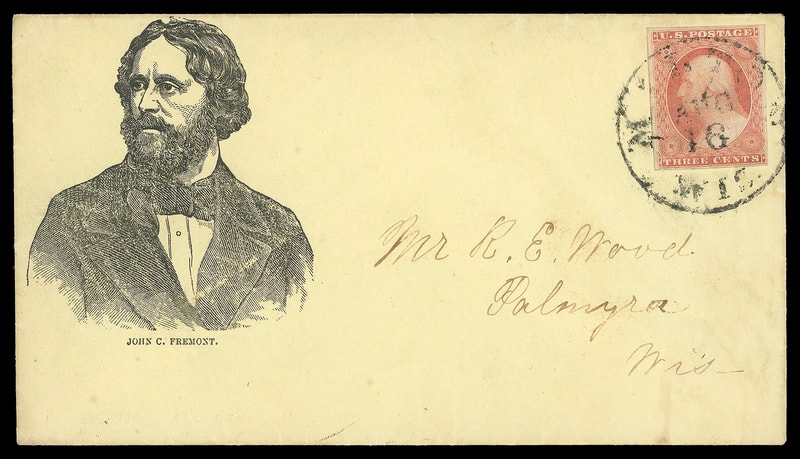 U.S. POSTAGE
THREE CENTS
AUG
16
WIS.
JOHN C. FREMONT.
Mr R. E. Wood
Palmyra
Wis